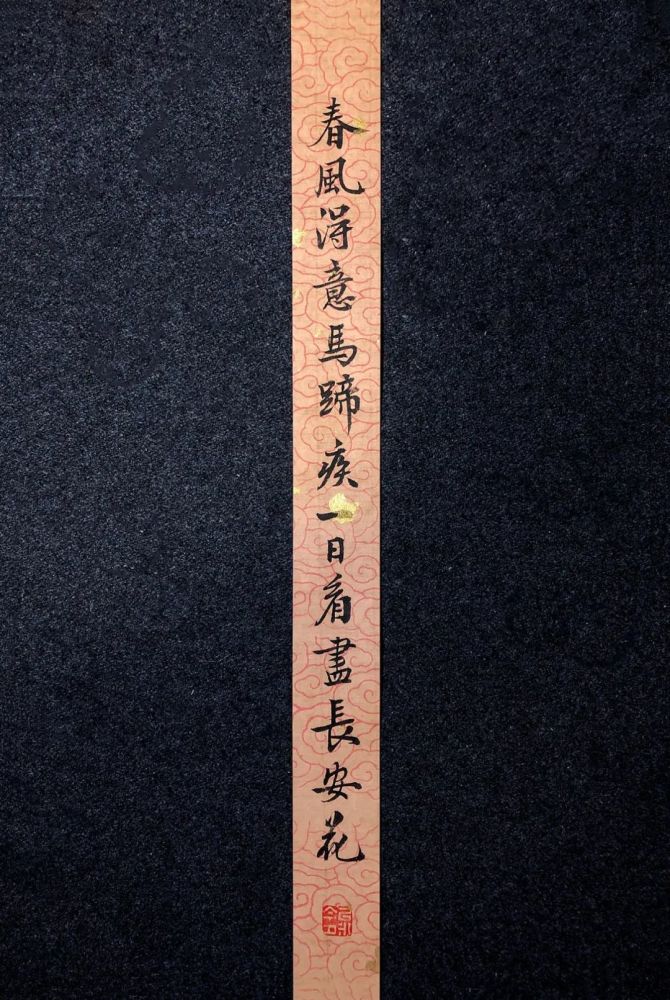 春風得意馬蹄疾一日看盡長安花